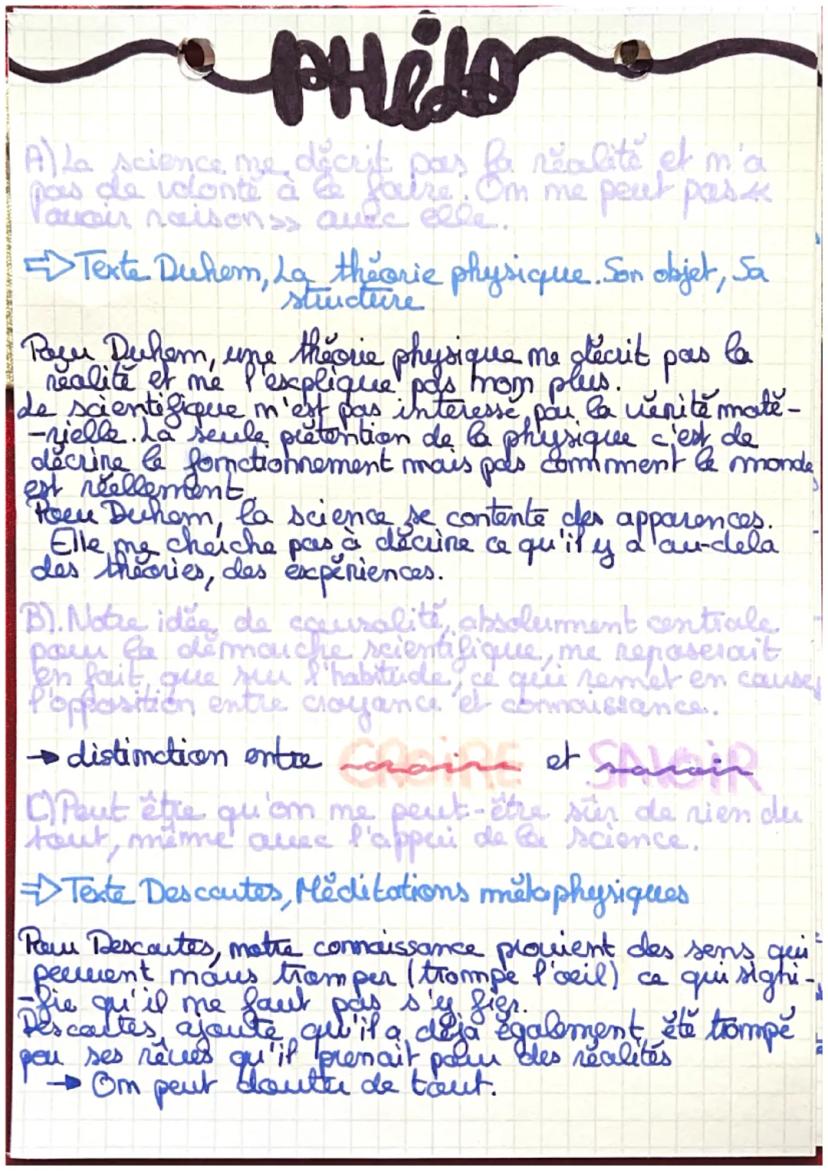 PHilo
A) La science ne décrit pas la réalité et n'a
pas de volonté à le faire. On ne peut pas «
avoir raison » avec elle.
⇒ Texte Duhem, La théorie physique. Son objet, Sa
structure
Pour Duhem, une théorie physique ne décrit pas la
réalité et ne l'explique pas non plus.
Le scientifique n'est pas interessé par la vérité maté-
-rielle. La seule prétention de la physique c'est de
décrire le fonctionnement mais pas comment le monde
est réellement.
Pour Duhem, la science se contente des apparences.
Elle ne cherche pas à décrire ce qu'il y a au-delà
des théories, des expériences.
B). Notre idée de causalité, absolument centrale
pour la démarche scientifique, ne reposerait
en fait que sur l'habitude, ce qui remet en cause
l'opposition entre croyance et connaissance.
→ distinction entre CROIRE croire et SAVOIR savoir
C) Peut être qu'on ne peut-être sûr de rien du
tout, même avec l'appui de la science.
⇒ Texte Descartes, Méditations métaphysiques
Pour Descartes, notre connaissance provient des sens qui
peuvent nous tromper (trompe l'oeil) ce qui signi-
-fie qu'il ne faut pas s'y fier.
Descartes ajoute qu'il a déjà également été trompé
par ses rêves qu'il prenait pour des réalités
→ On peut douter de tout.